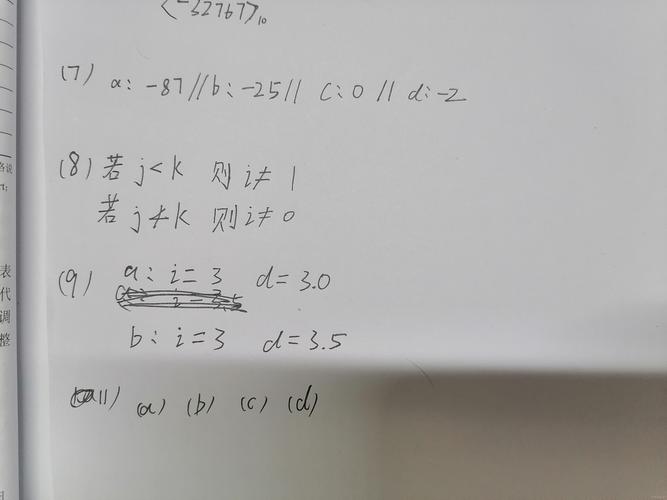 (-32767)₁₀
(7) a: -87 // b: -25 // c: 0 // d: -2
(8) 若 j < k 则 i ≠ 1
若 j ≮ k 则 i ≠ 0
(9) a: i = 3 d = 3.0
b: i = 3 d = 3.5
11) (a) (b) (c) (d)
表
代
调
整